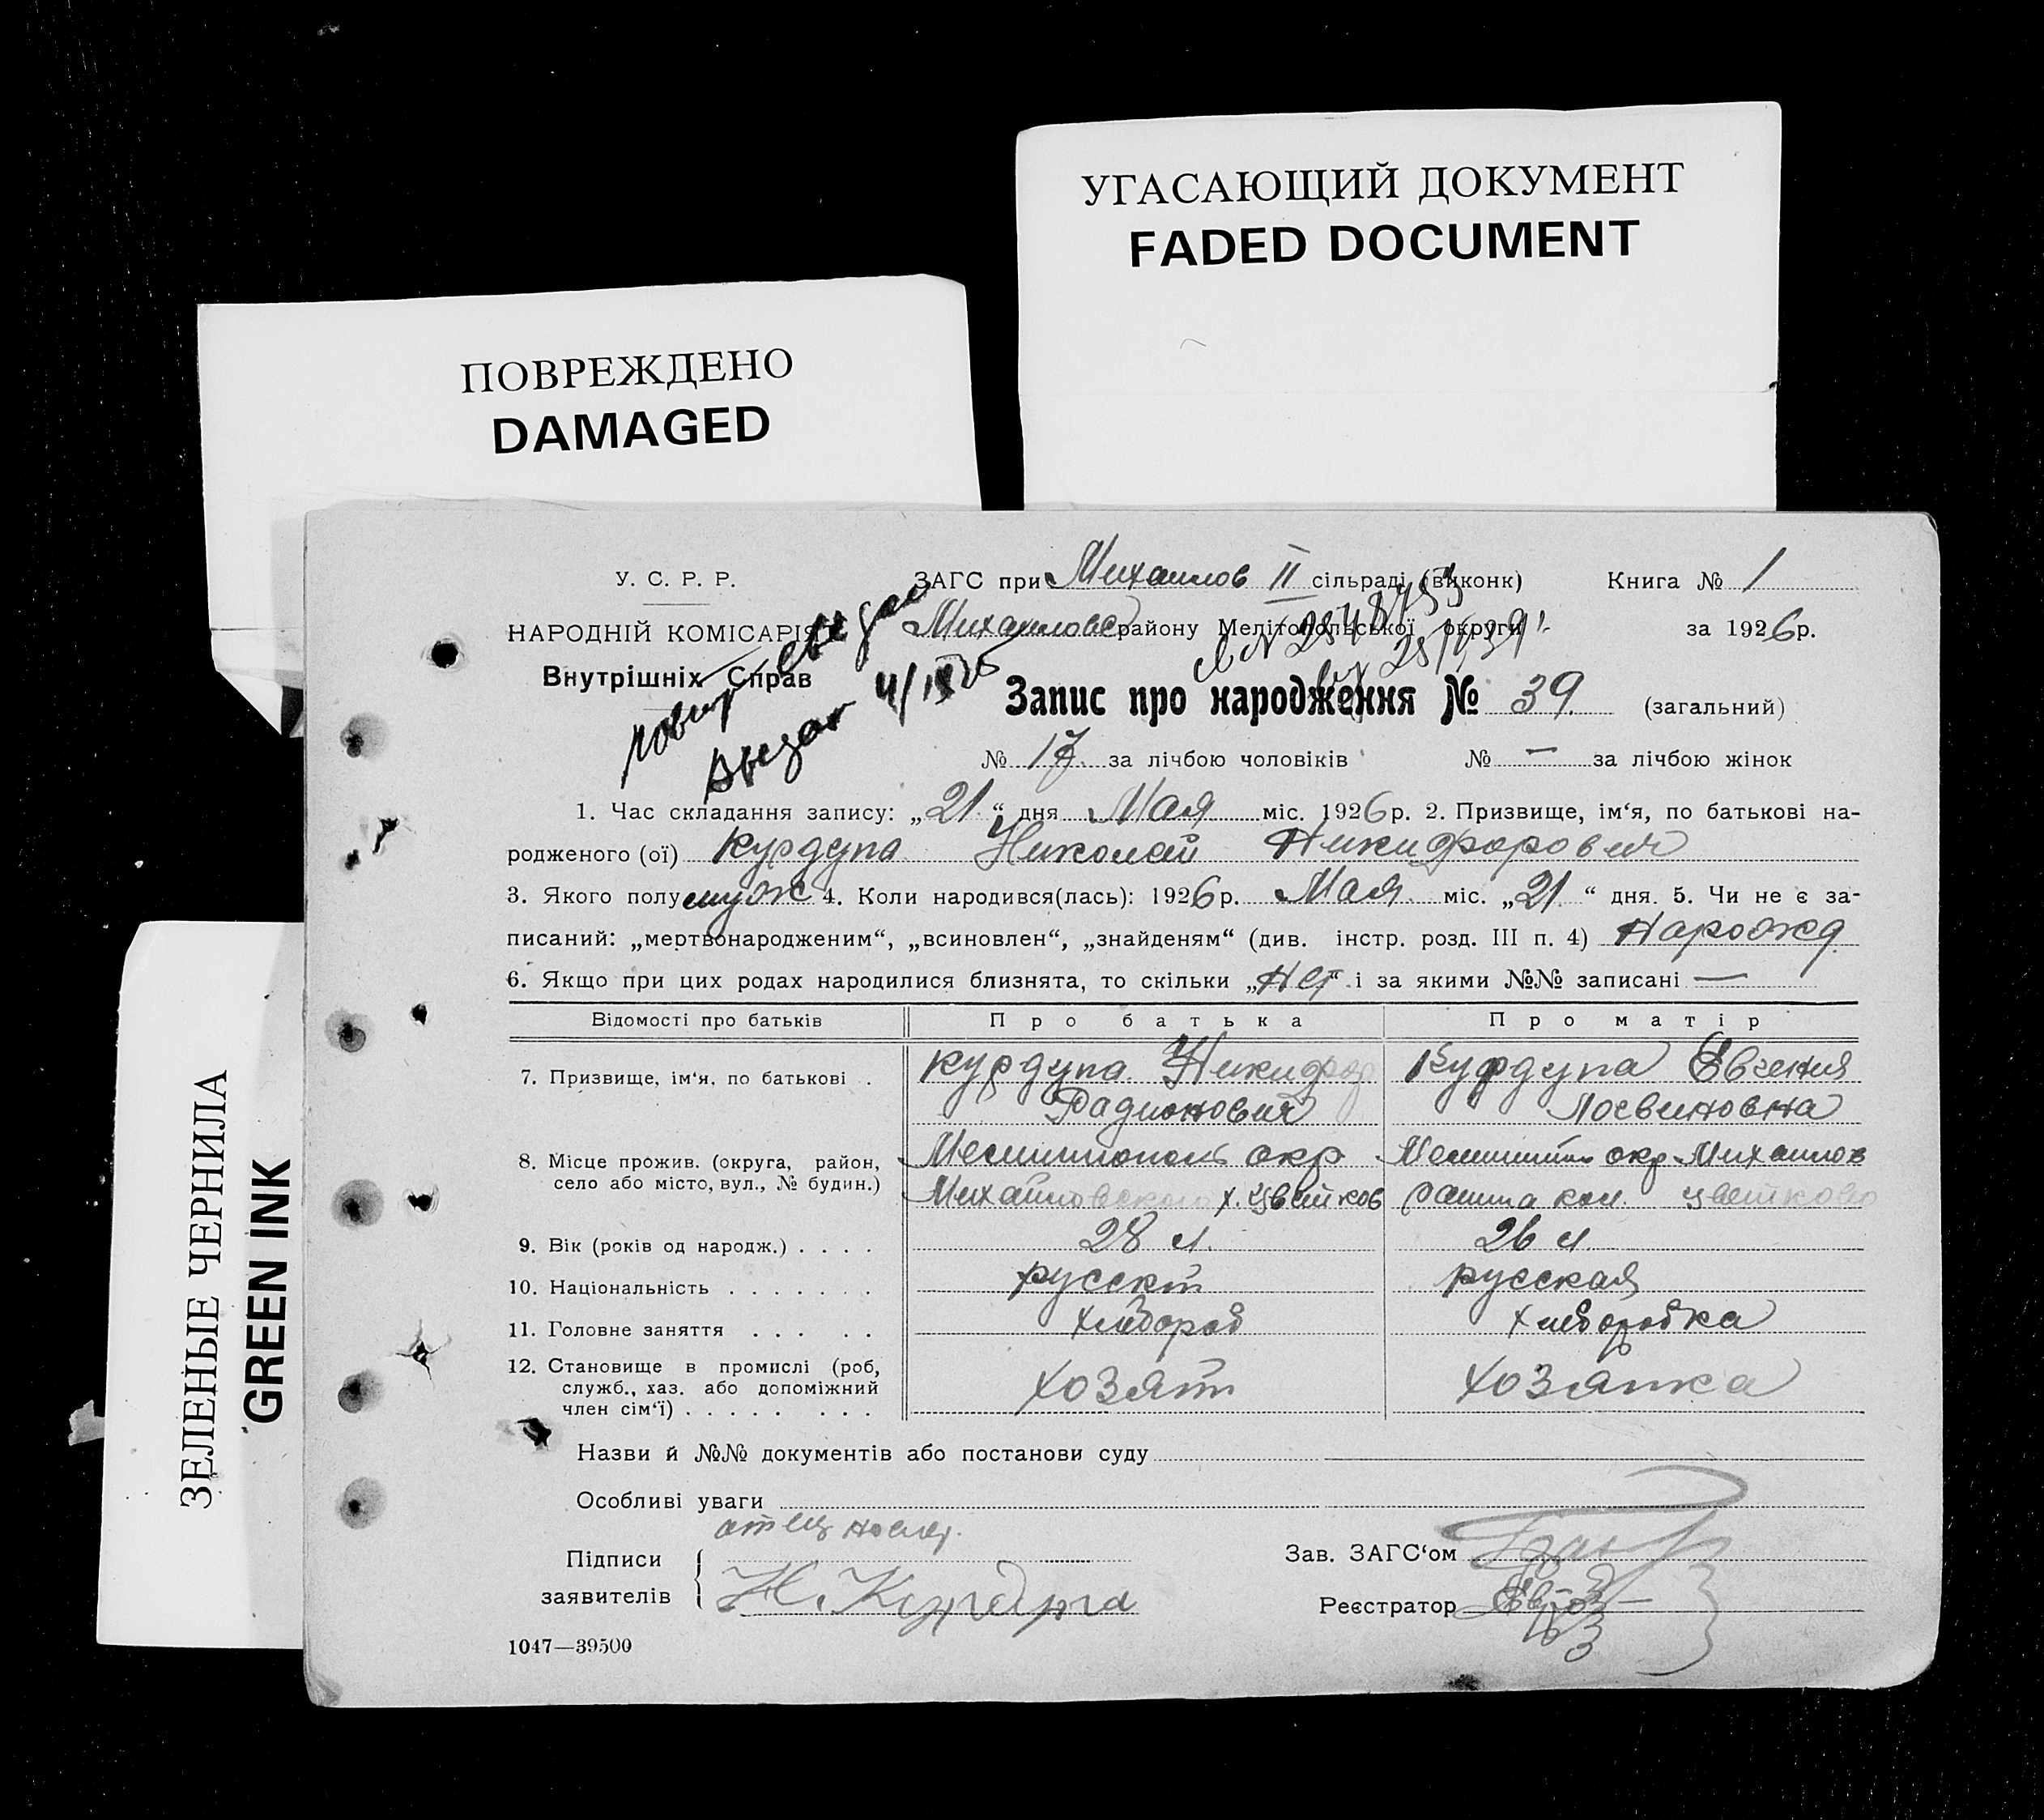 УГАСАЮЩИЙ ДОКУМЕНТ
FADED DOCUMENT
ПОВРЕЖДЕНО
DAMAGED
ЗЕЛЕНЫЕ ЧЕРНИЛА
GREEN INK
У. С. Р. Р.
НАРОДНІЙ КОМІСАРІЯ
Внутрішніх Справ
ЗАГС при Михайлов II сільраді (виконк) Книга № 1
Михайловс району Мелітопольської округи за 1926 р.
Запис про народження № 39 (загальний)
№ 17 за лічбою чоловіків № — за лічбою жінок
1. Час складання запису: „21“ дня Мая міс. 1926 р. 2. Призвище, ім‘я, по батькові на-
родженого (ої) Курдупа Николай Никифорович
3. Якого полу муж 4. Коли народився(лась): 1926 р. Мая міс. „21“ дня. 5. Чи не є за-
писаний: „мертвонародженим“, „всиновлен“, „знайденям“ (див. інстр. розд. III п. 4) Нарожд
6. Якщо при цих родах народилися близнята, то скільки „Нет“ і за якими №№ записані —
Відомості про батьків Про батька Про матір
7. Призвище, ім‘я, по батькові . Курдупа Никифор Курдупа Евгения
Радионович Логвиновна
8. Місце прожив. (округа, район, село або місто, вул., № будин.) Мелитополь окр Мелитоп окр Михайлов
Михайловского х. Цветков Цветково
9. Вік (років од народж.) . . . . 28 л. 26 л.
10. Національність . . . . . . . русский русская
11. Головне заняття . . . . . хлебороб хлеборобка
12. Становище в промислі (роб, служб., хаз. або допоміжний член сім‘ї) . . . . . . . . хозяин хозяйка
Назви й №№ документів або постанови суду
Особливі уваги
отец
Підписи заявителів Н. Курдупа
Зав. ЗАГС‘ом
Реєстратор
1047—39500